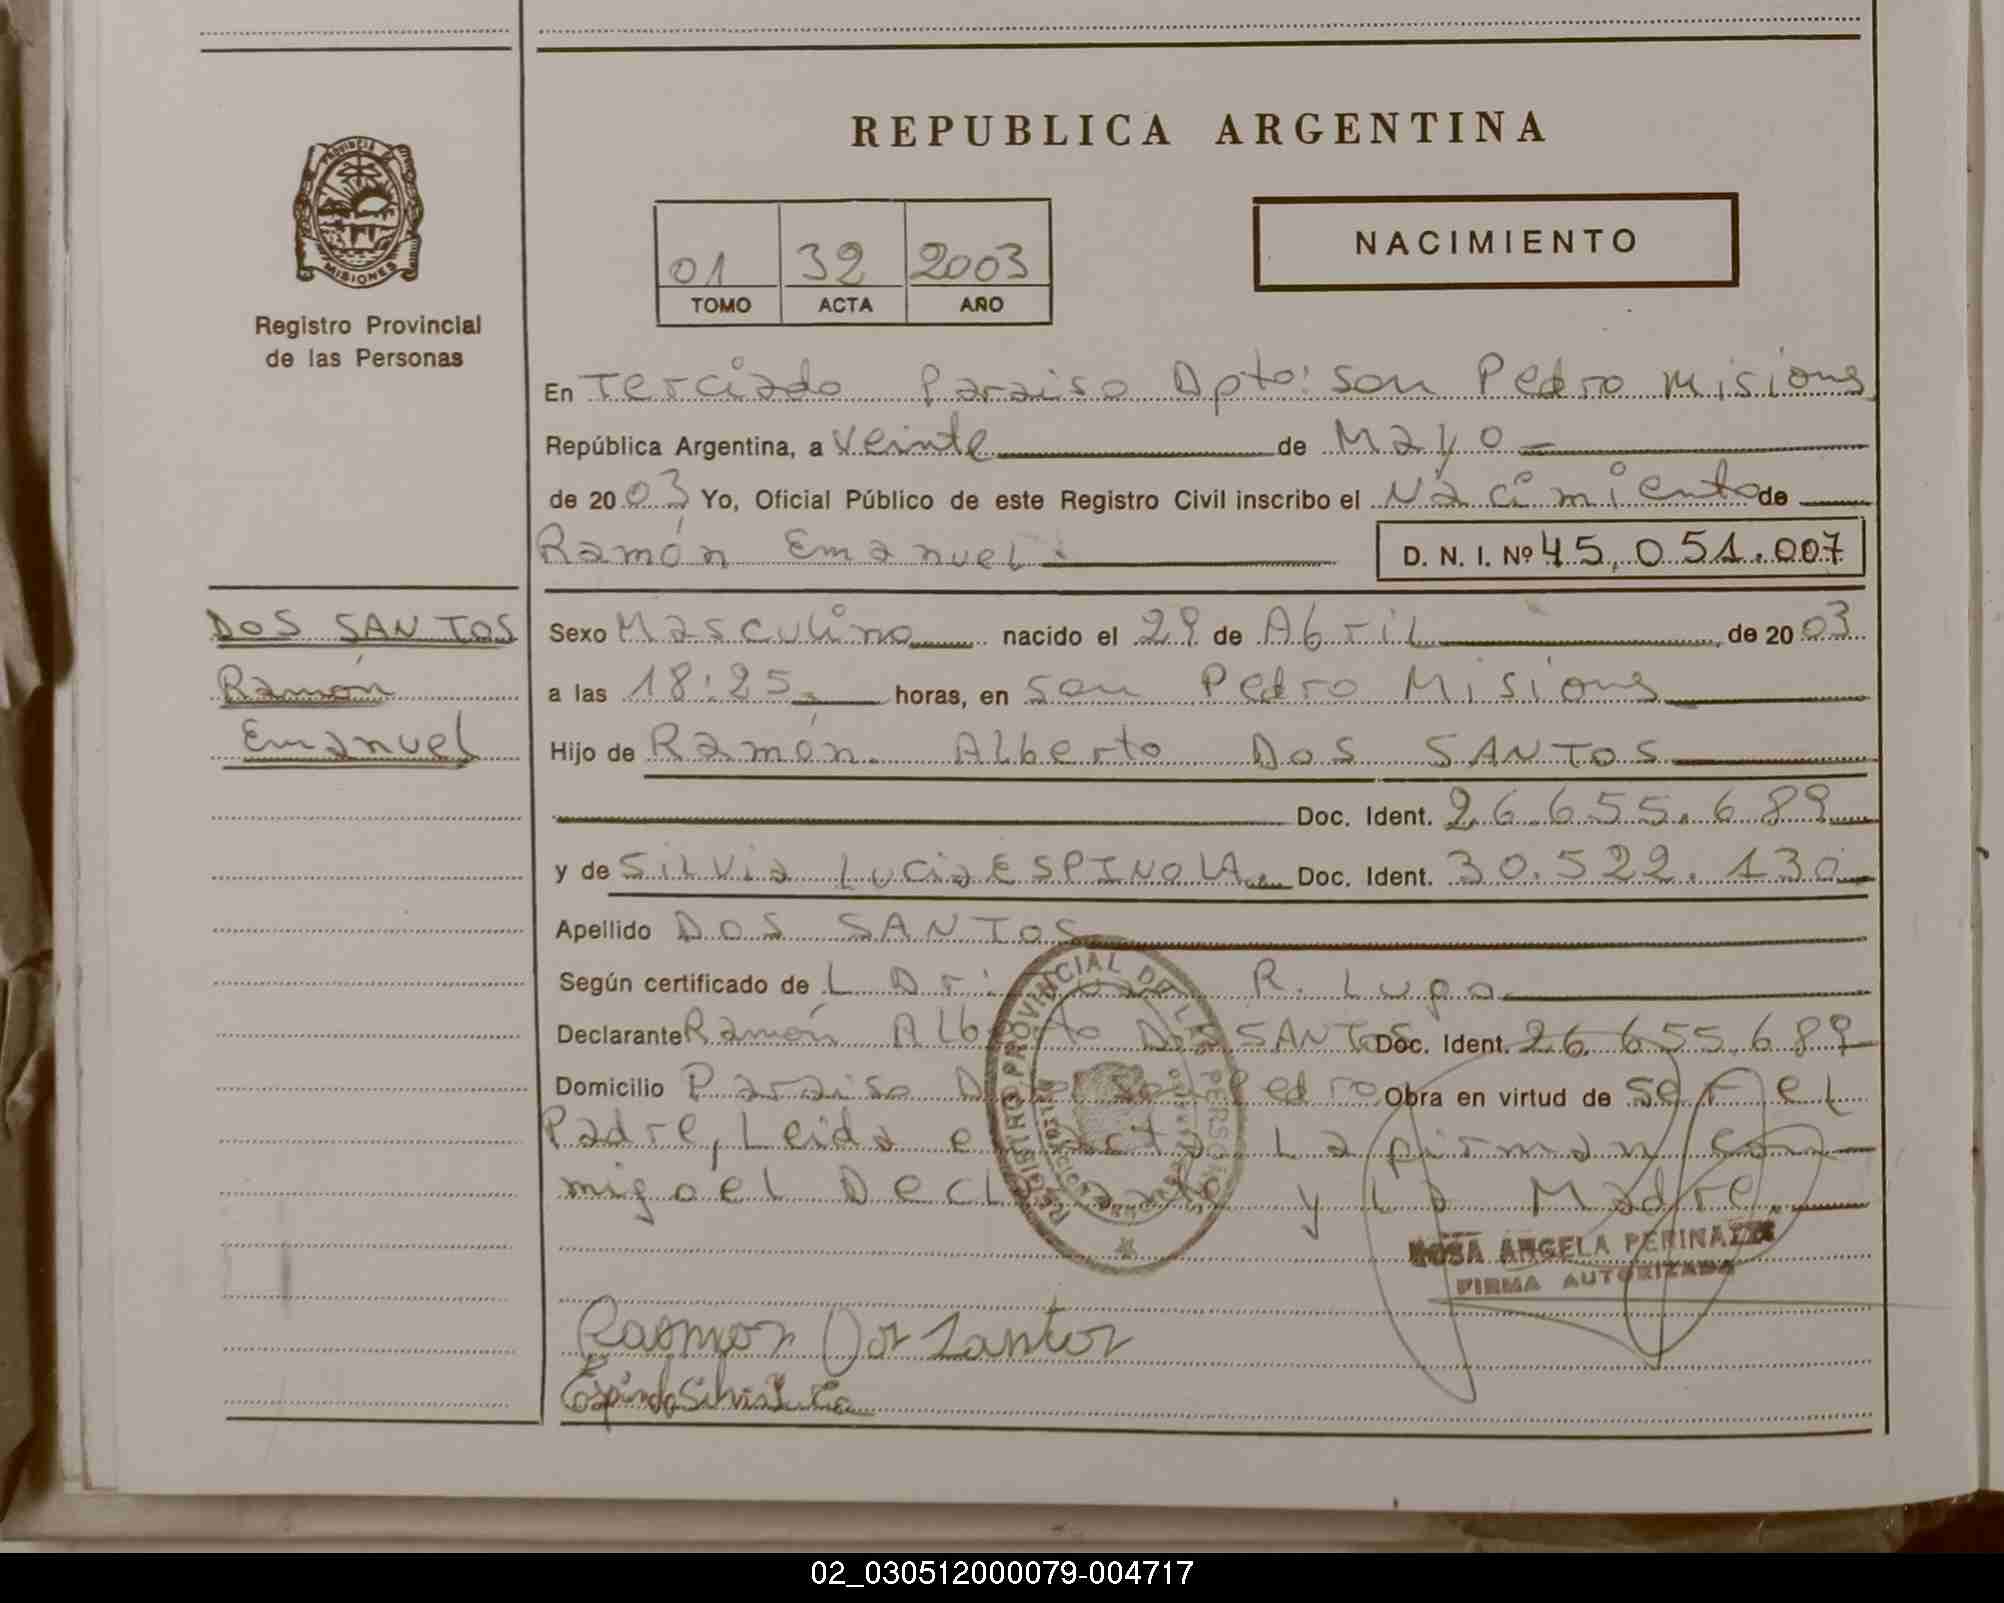 REPUBLICA ARGENTINA
PROVINCIA DE
MISIONES
Registro Provincial
de las Personas
NACIMIENTO
01 32 2003
TOMO ACTA AÑO
En Terciado Paraiso Dpto: san Pedro Misiones
República Argentina, a veinte de Mayo
de 2003 Yo, Oficial Público de este Registro Civil inscribo el Nacimiento de
Ramón Emanuel D. N. I. Nº 45.051.007
DOS SANTOS
Ramón
Emanuel
Sexo Masculino nacido el 29 de Abril de 2003
a las 18:25 horas, en san Pedro Misiones
Hijo de Ramón Alberto DOS SANTOS
Doc. Ident. 26.655.689
y de Silvia Lucia ESPINOLA Doc. Ident. 30.522.130
Apellido DOS SANTOS
Según certificado de L Dr: R. Lupo
Declarante Ramón Alberto DOS SANTOS Doc. Ident. 26.655.689
Domicilio Paraiso Dpto: san Pedro Obra en virtud de ser el
Padre, Leida el acta La firman con
migo el Declarante y La Madre
REGISTRO PROVINCIAL DE LAS PERSONAS
ROSA ANGELA PERINAZZI
FIRMA AUTORIZADA
Ramon Dos Santos
Espindola Silvia Lucia
02_030512000079-004717